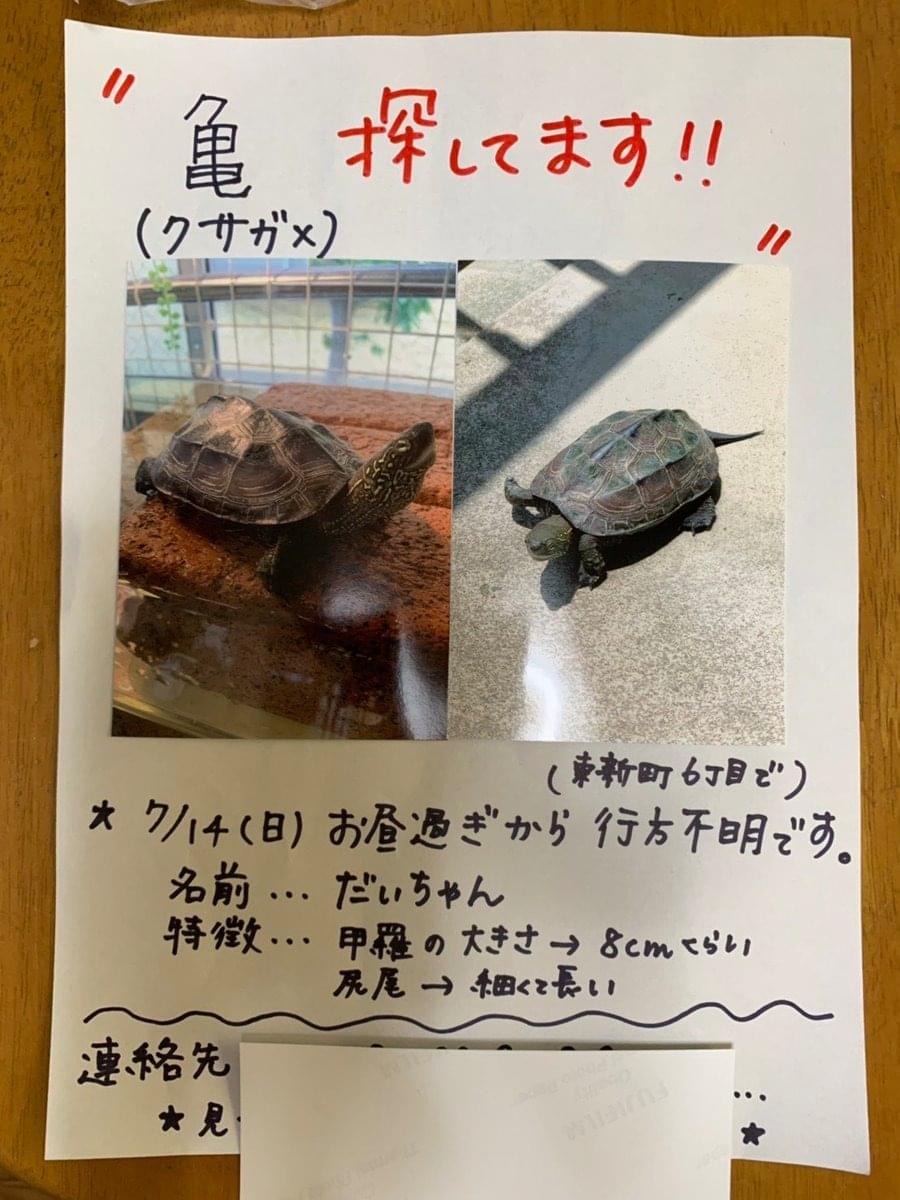 "亀 探してます!!"
(クサガメ)
(東新町6丁目で)
★ 7/14(日) お昼過ぎから 行方不明です。
名前… だいちゃん
特徴… 甲羅の大きさ→8cmくらい
尻尾→細くて長い
連絡先
★見
…
★